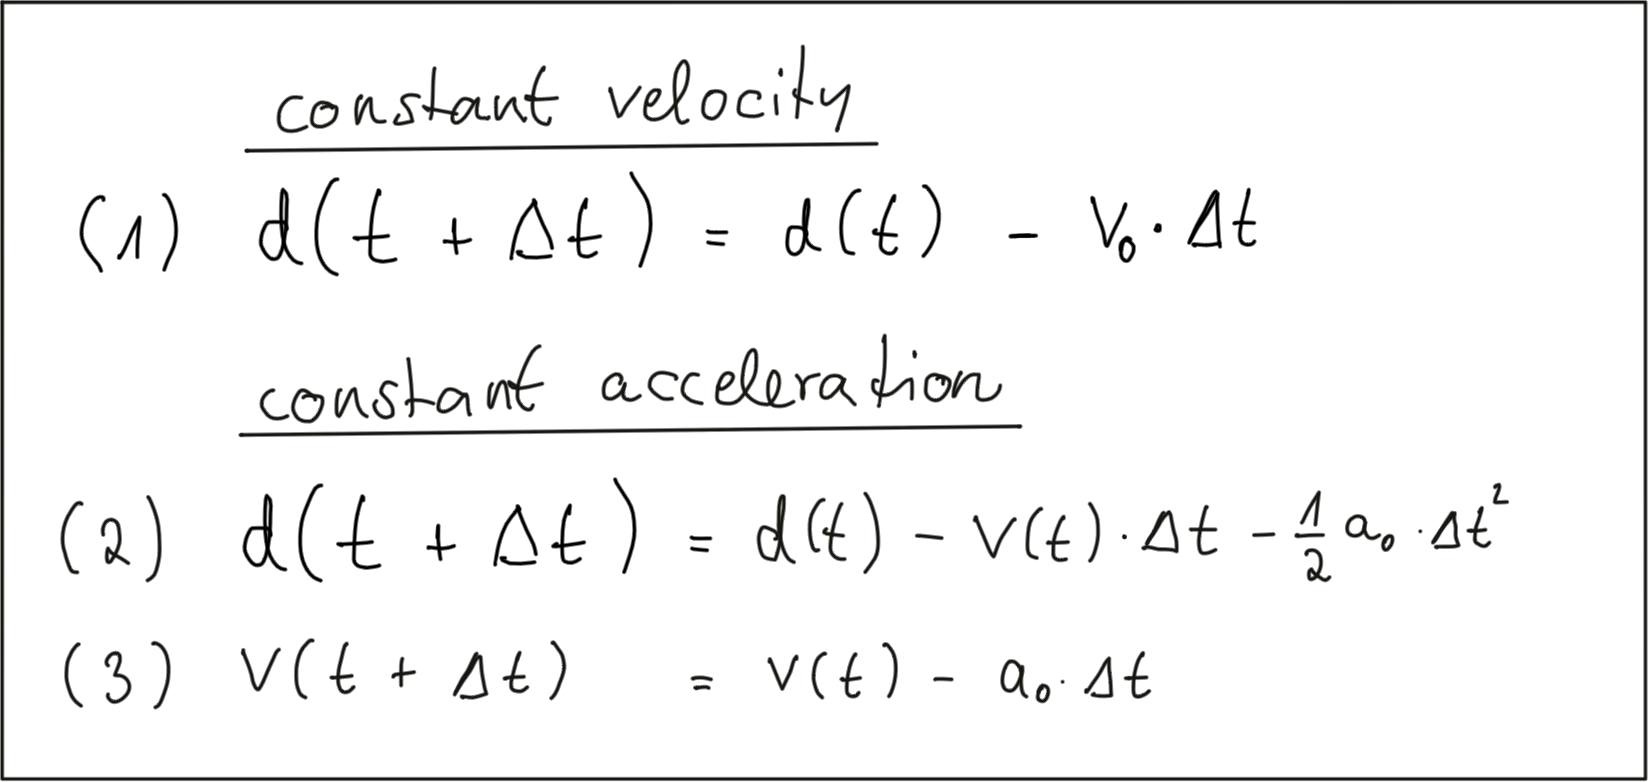 constant velocity
(1) d(t + Δt) = d(t) - V₀ · Δt
constant acceleration
(2) d(t + Δt) = d(t) - V(t) · Δt - 1/2 a₀ · Δt²
(3) V(t + Δt) = V(t) - a₀ · Δt